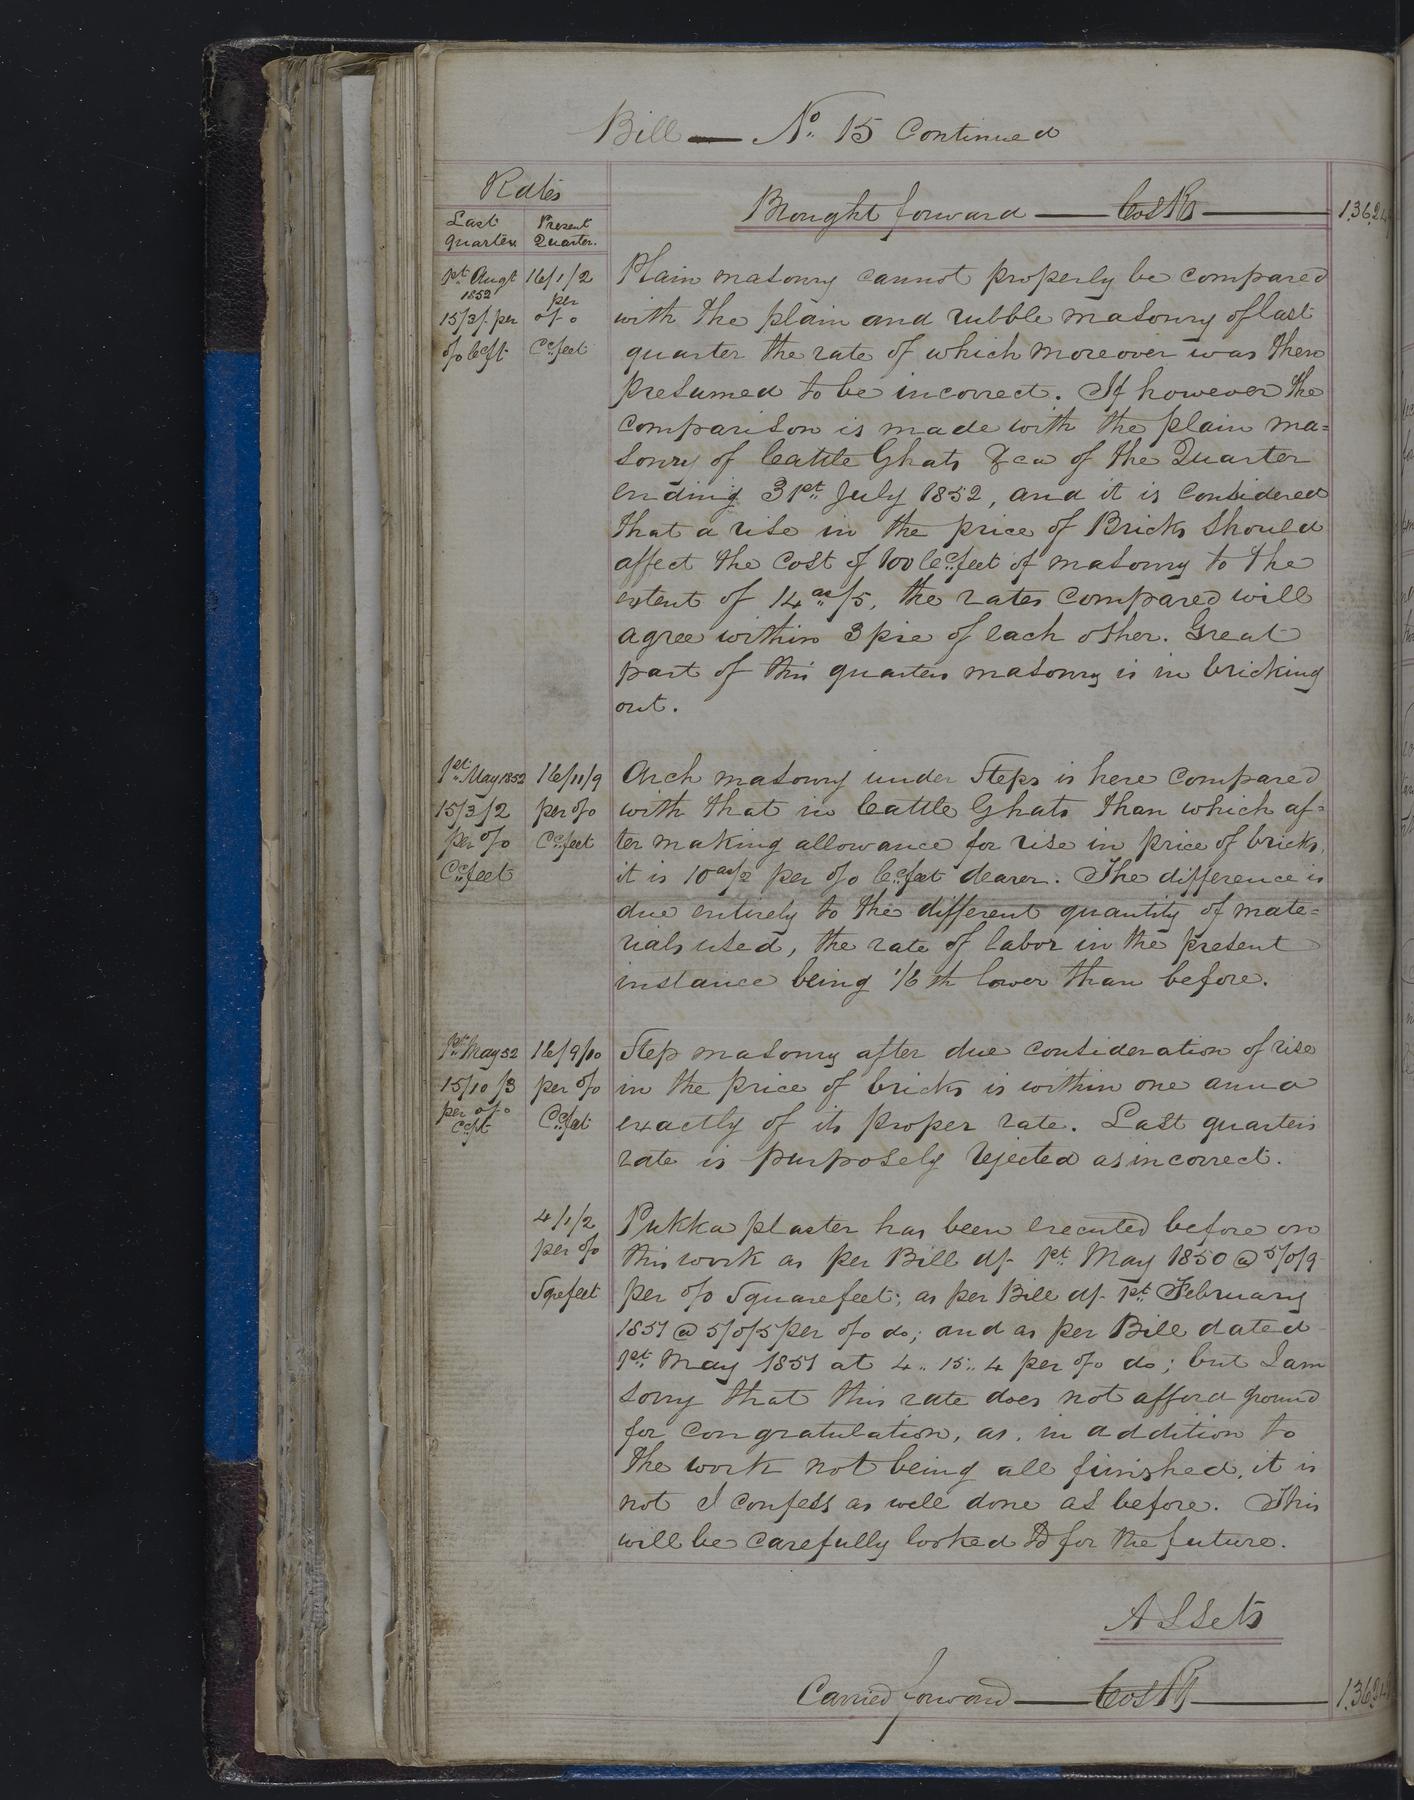 Bill — No. 15 Continued
Rates
Last quarter
Present Quarter.
Brought forward — Co's Rs — 1,36,24
1st Augt 1852
15/3/- per
o/o Cc ft
16/1/2
per
o/o
Cc. feet
Plain masonry cannot properly be compared
with the plain and rubble masonry of last
quarter the rate of which moreover was then
presumed to be incorrect. If however the
comparison is made with the plain ma=
sonry of Cattle Ghats &ca of the Quarter
ending 31st July 1852, and it is considered
that a rise in the price of Bricks should
affect the cost of 100 Cc. feet of masonry to the
extent of 14 as/5, the rates compared will
agree within 3 pie of each other. Great
part of this quarters masonry is in bricking
out.
1st May 1852
15/3/2
per o/o
Cc. feet
16/11/9
per o/o
Cc. feet
Arch masonry under Steps is here compared
with that in Cattle Ghats than which af=
ter making allowance for rise in price of bricks,
it is 10 as/2 per o/o Cc. feet dearer. The difference is
due entirely to the different quantity of mate=
rials used, the rate of labor in the present
instance being 1/6th lower than before.
1st May 52
15/10/3
per o/o
Cc ft
16/9/10
per o/o
Cc. feet
Step masonry after due consideration of rise
in the price of bricks is within one anna
exactly of its proper rate. Last quarters
rate is purposely rejected as incorrect.
4/1/2
per o/o
Sqre feet
Pukka plaster has been executed before on
this work as per Bill df. 1st May 1850 @ 5/0/9
per o/o Square feet; as per Bill df. 1st February
1851 @ 5/0/5 per o/o do; and as per Bill dated
1st May 1851 at 4.. 15.. 4 per o/o do; but I am
sorry that this rate does not afford ground
for congratulation, as, in addition to
the work not being all finished, it is
not I confess as well done as before. This
will be carefully looked to for the future.
Assets
Carried forward — Co's Rs — 1,36,24